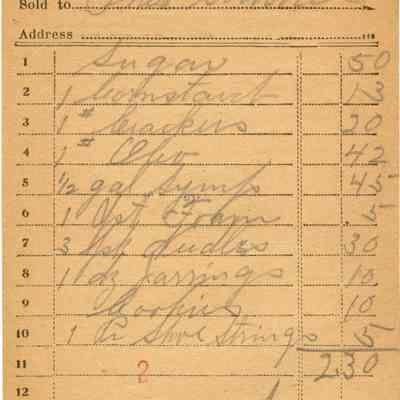 Sold to
Address
1 Sugar 50
2 1 Cornstarct 13
3 1 # Crackers 20
4 1 # Oleo 42
5 1/2 gal Syrup 45
6 1 Yst Foam 5
7 3 pk 30
8 1 dz Jarrings 10
9 Cookies 10
10 1 Pr Shoe Strings 5
11 2.30
2
12